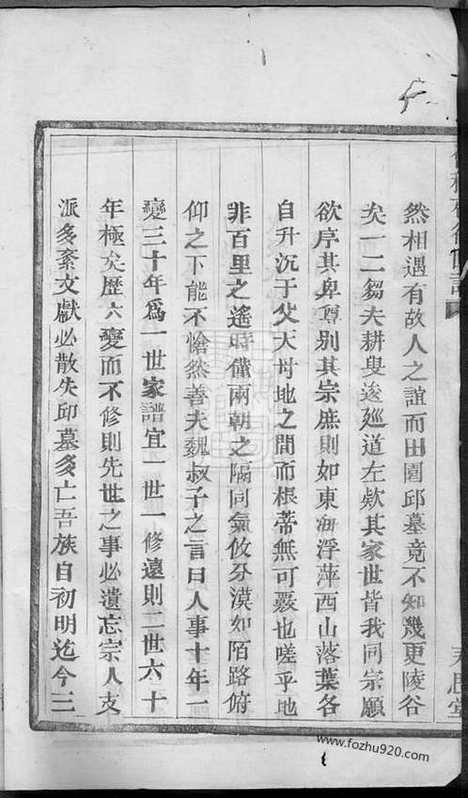 然相遇有故人之誼而田園邱墓竟不知幾更陵谷
矣一二芻夫耕叟逡廵道左欸其家世皆我同宗願
欲序其卑尊别其宗庶則如東海浮萍西山落葉各
自升沉于父天母地之間而根蒂無可覈也嗟乎地
非百里之遙時僅兩朝之隔同氣攸分漠如陌路俯
仰之下能不愴然善夫魏叔子之言曰人事十年一
變三十年爲一世家譜宜一世一修遠則二世六十
年極矣歷六變而不修則先世之事必遺忘宗人支
派多紊文獻必散失邱墓多亡吾族自初明迄今三
www.fozhu920.com